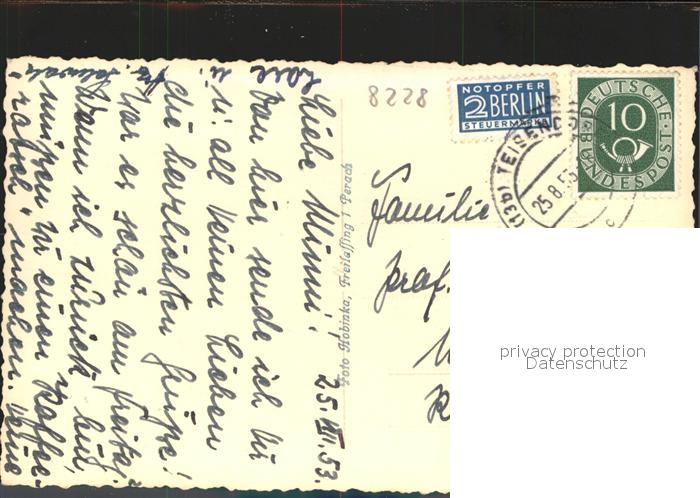 8228
NOTOPFER
2 BERLIN
STEUERMARKE
DEUTSCHE
10
BUNDESPOST
(13b) TEISENDORF
25.8.53
c
Familie
Prof.
privacy protection
Datenschutz
Foto Hobinka, Freilassing / Perach
25. VIII. 53.
Liebe Minni!
Von hier sende ich Dir
u. all Deinen Lieben
die herrlichsten Grüße!
War es schön am Freitag?
Wenn ich zurück bin,
müssen wir einen Kaffee-
ratsch machen. Deine